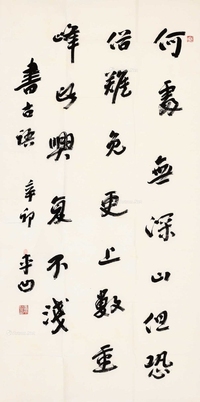 何处無深山但恐
俗難免更上數重
峰此興复不淺
書古語 辛卯 平凹